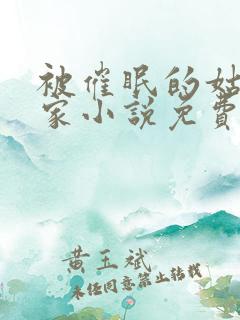 被催眠的姑
家小说免費
黄玉斌
未经同意禁止转载